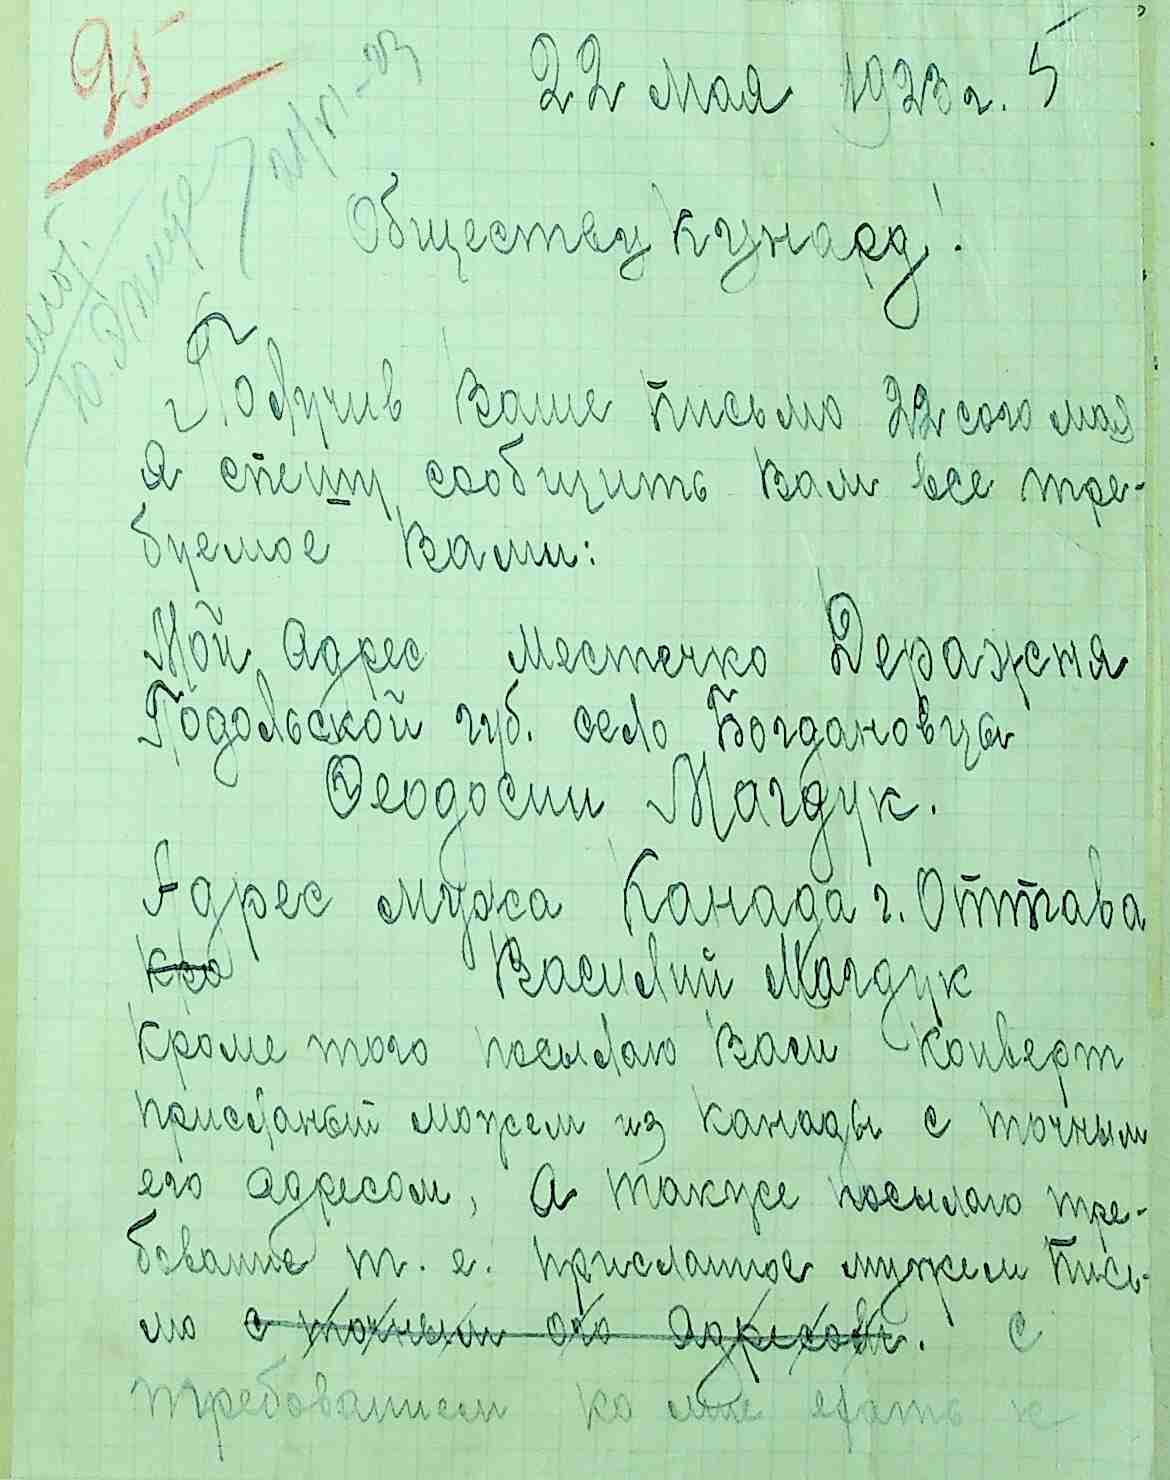 95
22 мая 1923 г. 5
Обществу Кунард!
Получив Ваше письмо 22 сого мая
я спешу сообщить Вам все тре-
буемое Вами:
Мой адрес местечко Деражня
Подольской губ. село Богдановцы
Феодосии Магдук.
Адрес мужа Канада г. Оттава
кро Василий Магдук
Кроме того посылаю Вам конверт
присланый можем из Канады с точным
его адресом, а также посылаю тре-
бование т. е. присланное мужем пись-
мо с точным его адресом. с
требованием ко мне ехать к